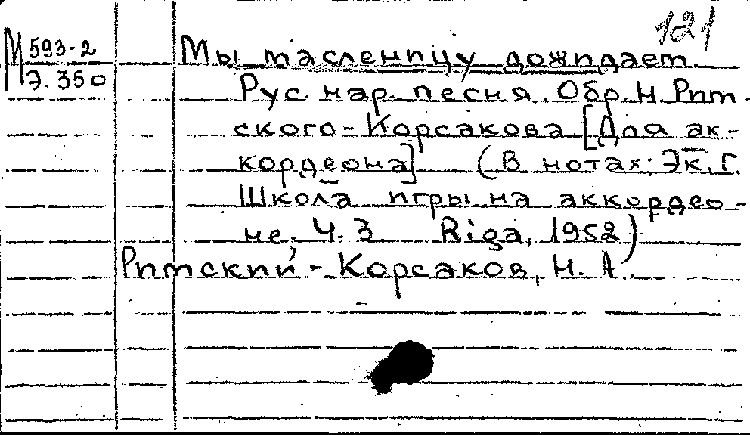 121
М 593-2
Э. 350
Мы масленицу дожидаем.
Рус. нар. песня. Обр. Н. Рим-
ского-Корсакова [Для ак-
кордеона] (В нотах: Эк, Г.
Школа игры на аккордео-
не, Ч. 3 Riga, 1952)
Римский-Корсаков, Н. А.